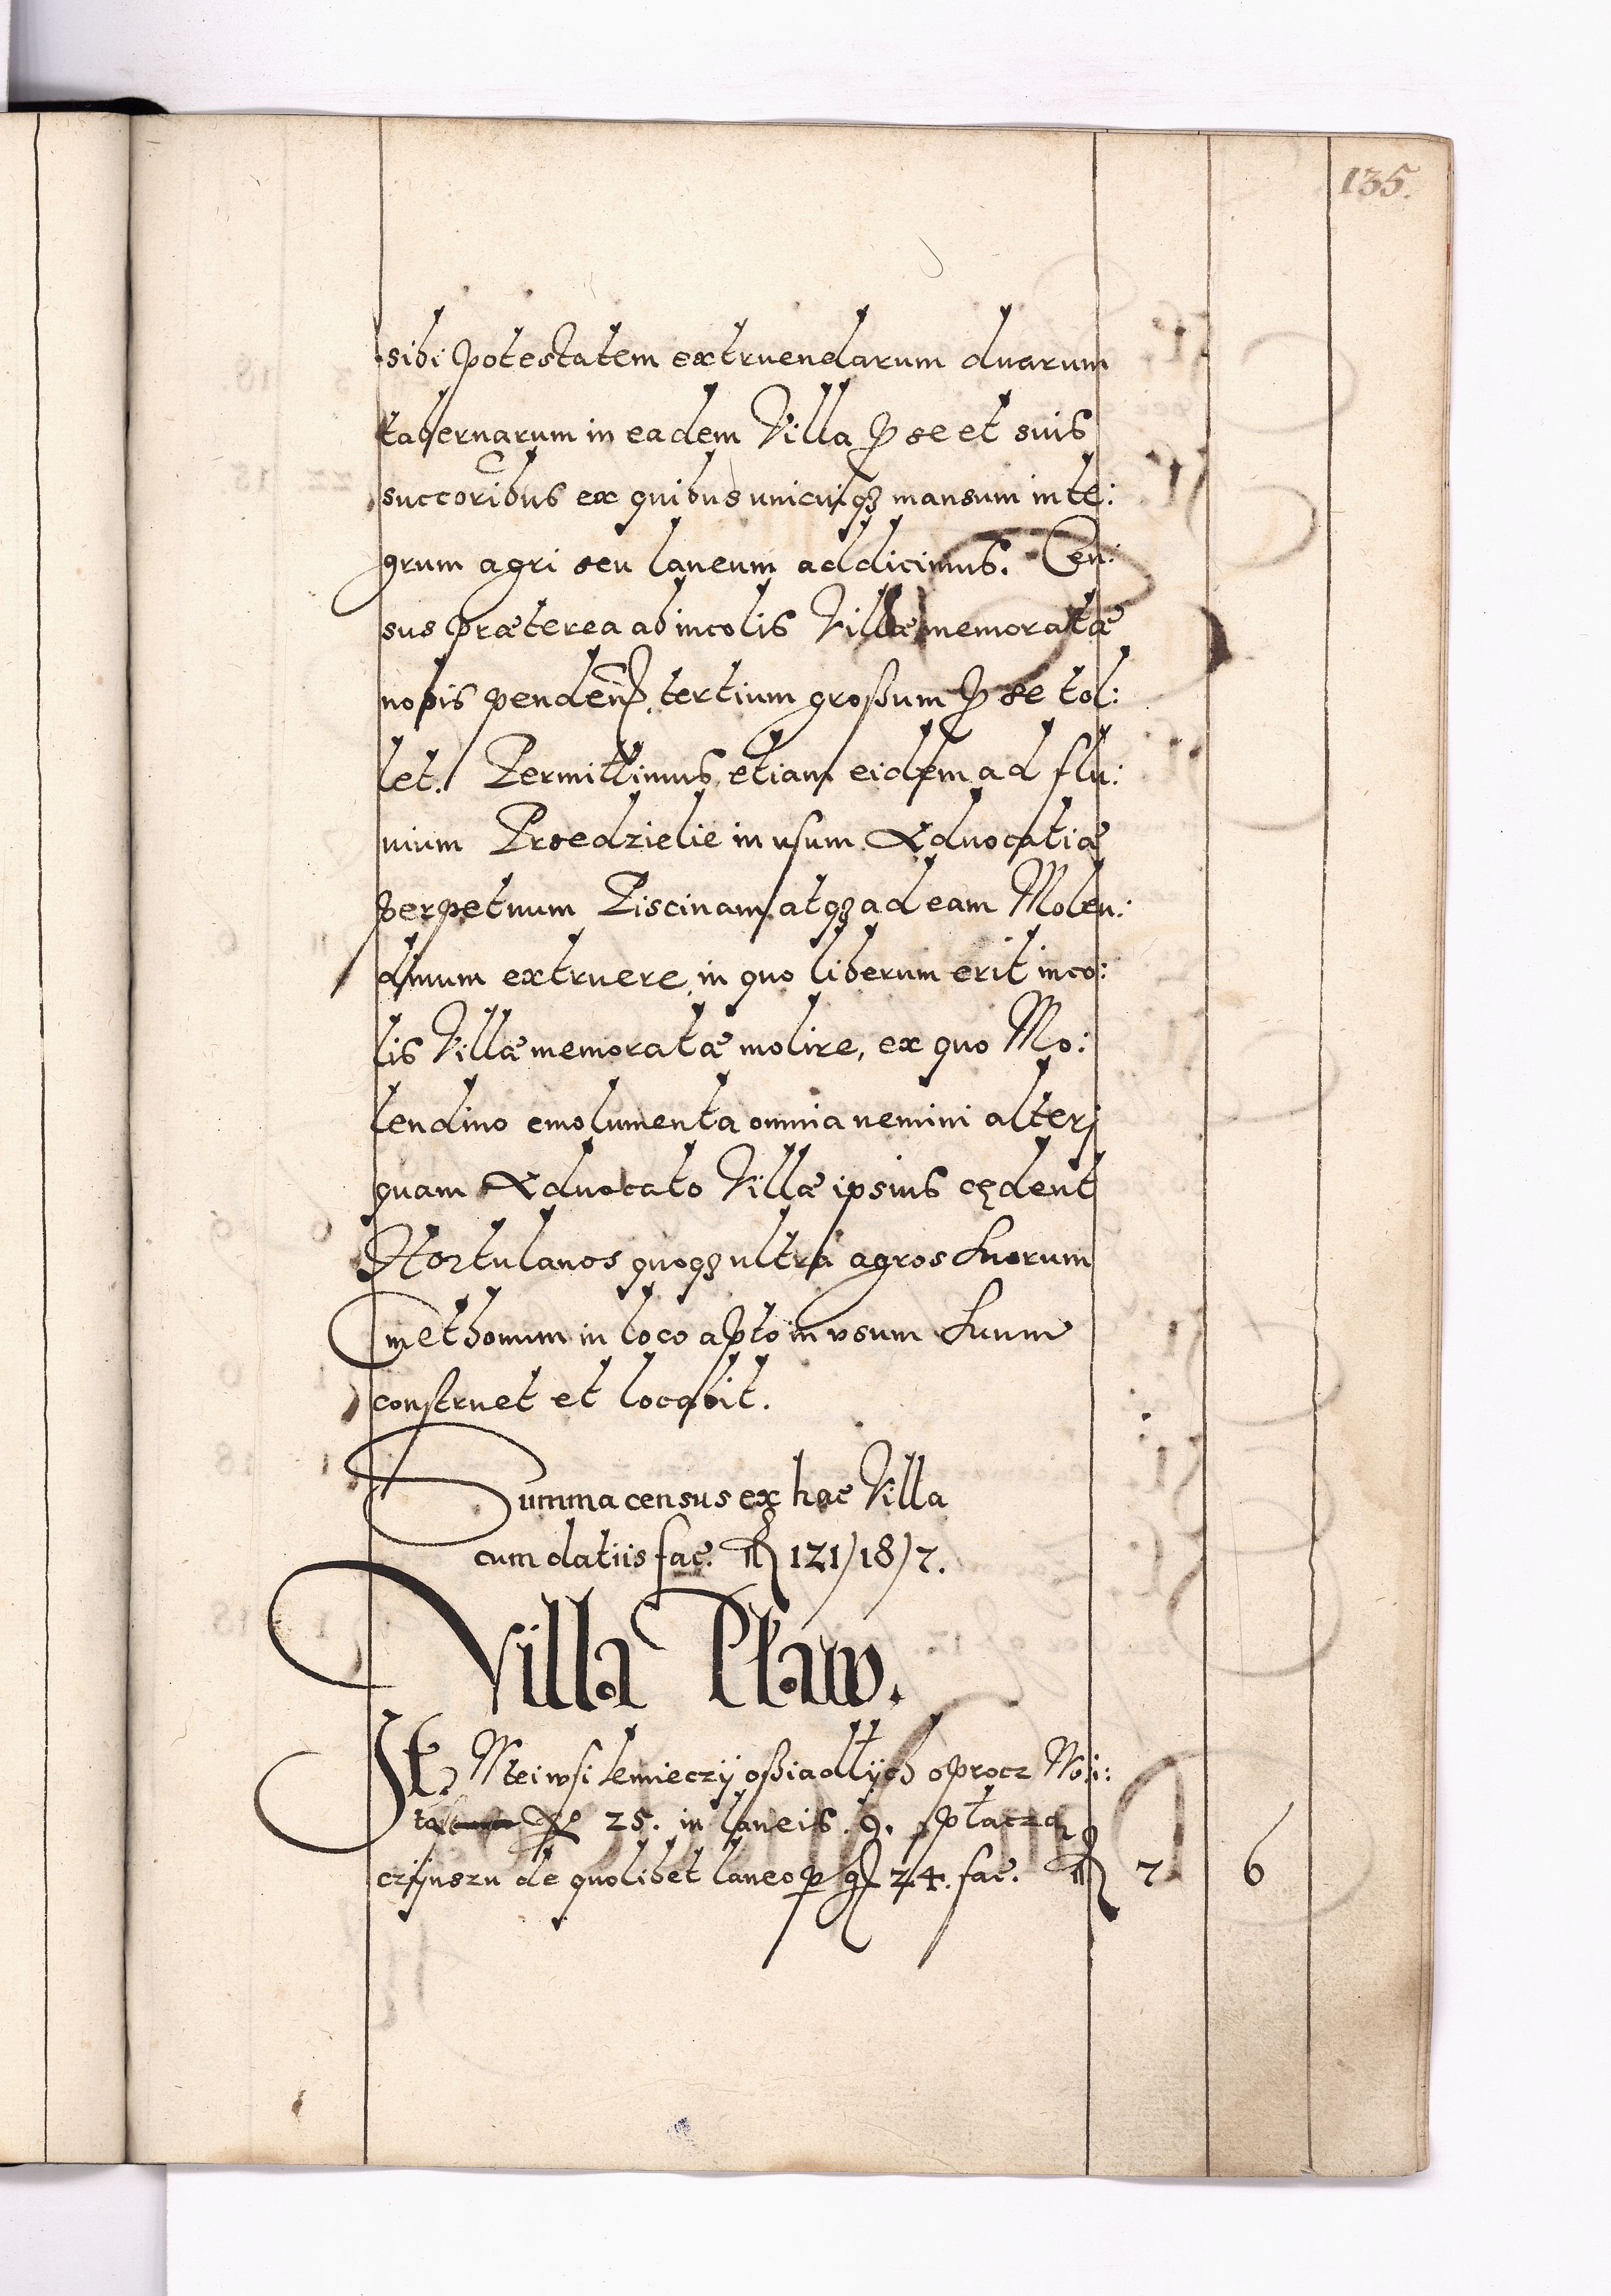 135.
sibi potestatem extruendarum duarum
tabernarum in eadem Villa p se et suis
succoribus ex quibus unicuiqꝫ mansum inte:
grum agri seu laneum addicimus. Cen:
sus præterea ab incolis Villæ memoratæ
nobis penden. tertium großum p se tol:
let. Permittimus etiam eidem ad flu:
uium Przedzielie in usum Aduocatiæ
perpetuum Piscinam atqꝫ ad eam Molen:
dinum extruere, in quo liberum erit inco:
lis Villæ memoratæ molire, ex quo Mo:
lendino emolumenta omnia nemini alteri
quam Aduocato Villæ ipsius cędent
Hortulanos quoqꝫ ultra agros suorum
Cmethonum in loco apto in usum suum
construet et locabit.
Summa census ex hac Villa
cum datiis fac. fl 121/18/7.
Villa Pław.
It. W tei wsi kmieczÿ oßiadłÿch oprocz Woi:
ta No 25. in laneis 9. płaczą
czÿnszu de quolibet laneo p gr 24. fac. fl 7 6